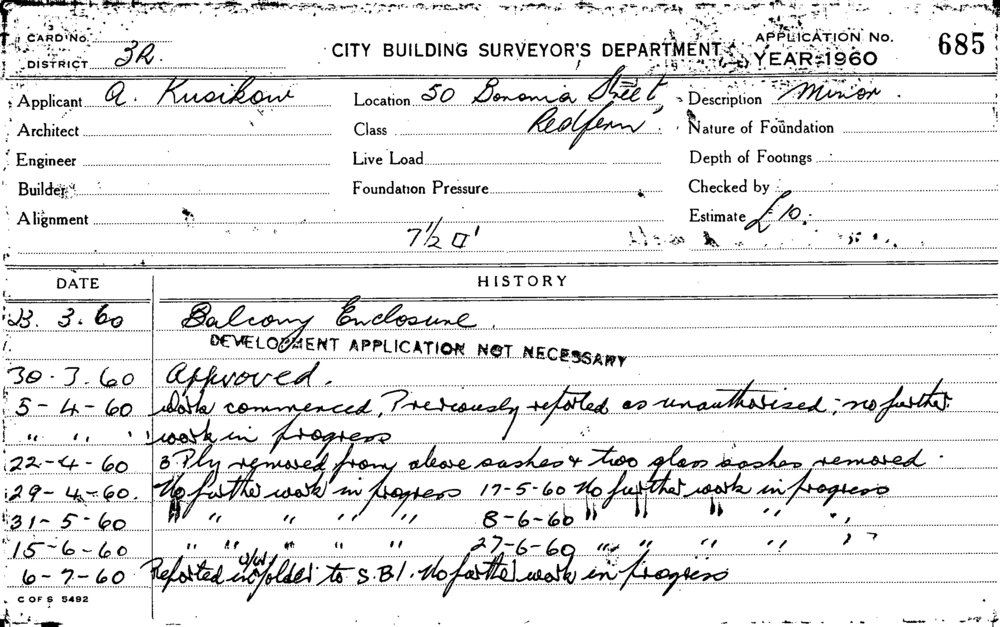 CARD No.
DISTRICT 3R.
CITY BUILDING SURVEYOR'S DEPARTMENT
APPLICATION No. 685
YEAR 1960
Applicant A. Kusikow Location 50 Bonoma Street Description Minor.
Architect Class Redfern Nature of Foundation
Engineer Live Load Depth of Footings
Builder Foundation Pressure Checked by
Alignment Estimate £10.
7½ □'
DATE HISTORY
23. 3. 60 Balcony Enclosure.
DEVELOPMENT APPLICATION NOT NECESSARY
30. 3. 60 Approved.
5-4-60 Work commenced, Previously reported as unauthorised; no further
" " " work in progress
22-4-60 3 Ply removed from above sashes & two glass sashes removed.
29-4-60. No further work in progress 17-5-60 No further work in progress
31-5-60 " " " " " 8-6-60 " " " " "
15-6-60 " " " " " 27-6-60 " " " " "
6-7-60 Reported in U/W folder to S.B.I. No further work in progress
C OF S 5492